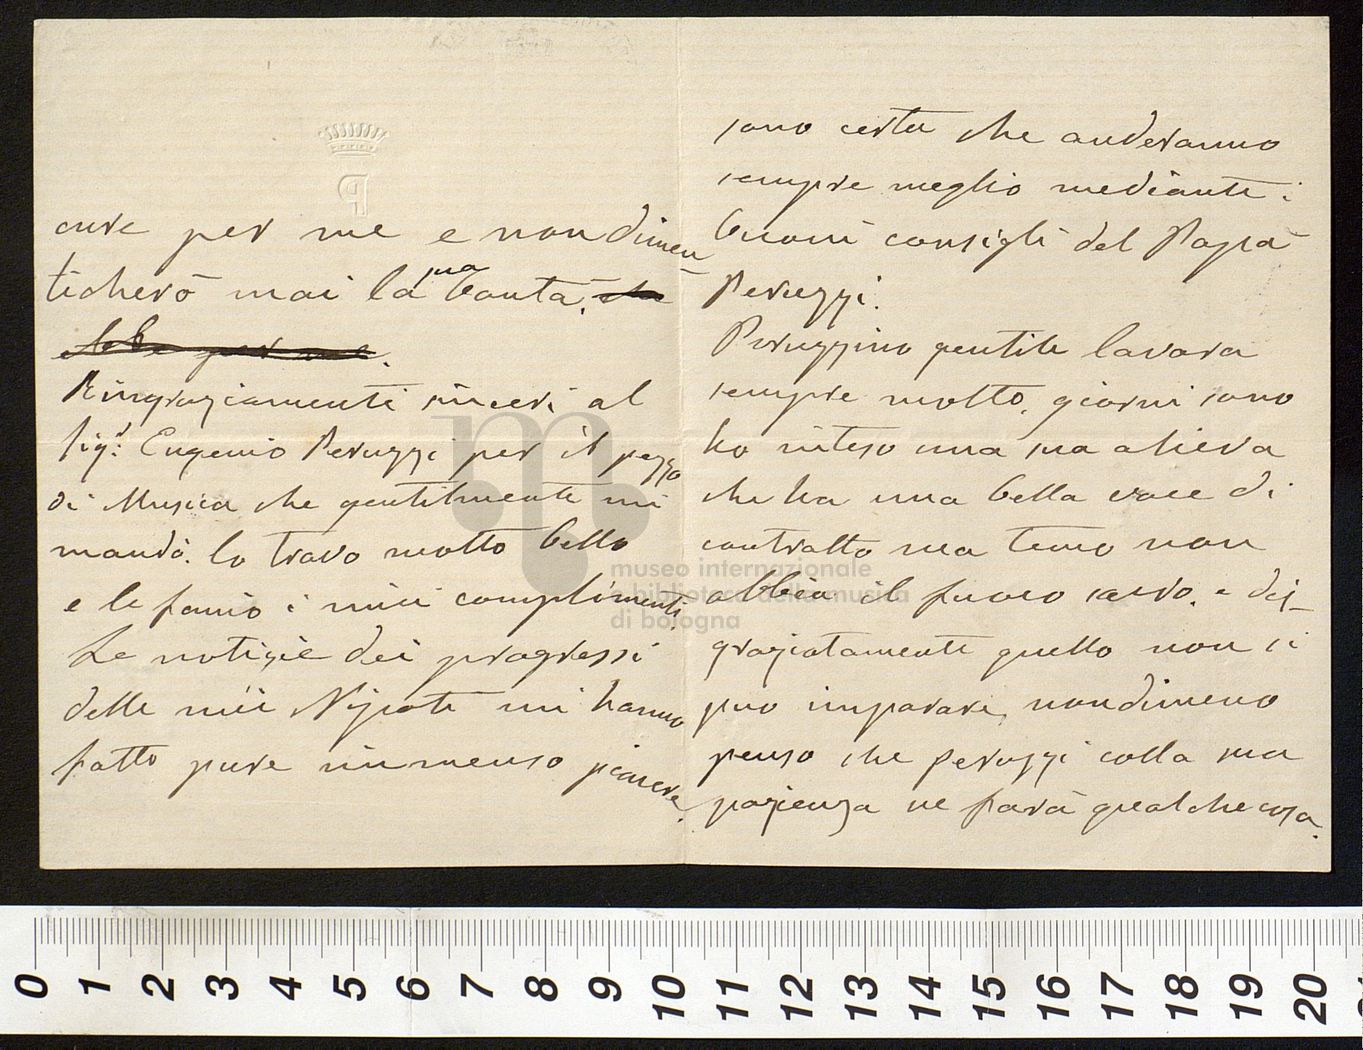 P
cure per me e non dimen
ticherò mai la sua bontà.
Ringraziamenti sinceri al
Sigr. Eugenio Peruzzi per il pezzo
di Musica che gentilmente mi
mandò. lo trovo molto bello
e le faccio i miei complimenti.
Le notizie dei progressi
delle mie Nipote mi hanno
fatto pure immenso piacere.
sono certa che anderanno
sempre meglio mediante i
buoni consigli del Papà
Peruzzi.
Peruzzino gentile lavora
sempre molto, giorni sono
ho inteso una sua alieva
che ha una bella voce di
contralto ma temo non
abbia il fuoco sacro. e dis-
graziatamente quello non si
può imparare, nondimeno
penso che Peruzzi colla sua
pazienza ne farà qualche cosa.
museo internazionale
e biblioteca della musica
di bologna
0 1 2 3 4 5 6 7 8 9 10 11 12 13 14 15 16 17 18 19 20